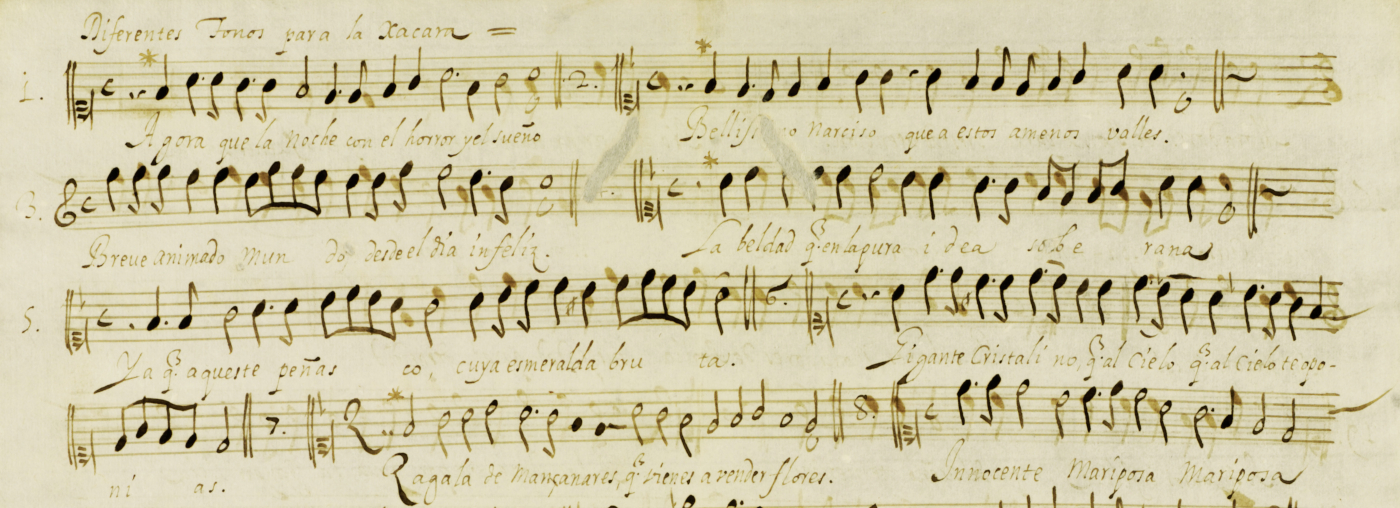 Diferentes Tonos para la Xacara =
1. 2.
Agora que la noche con el horror y el sueño Bellis no Narciso que a estos amenos valles.
3.
Breve animado Mun do, desde el dia infeliz. La beldad q̃. en la pura i dea sobe rana
5. 6.
Ya q̃. aqueste peñas co, cuya esmeralda bru ta. Gigante Cristali no, q̃. al Cielo, q̃. al Cielo te opo-
7. 8.
ni as. Zagala de Mançanares, q̃. vienes a vender flores. Innocente Mariposa Mariposa